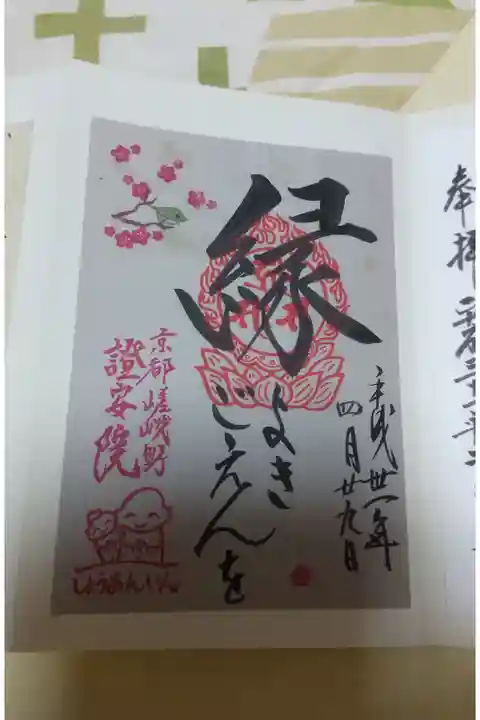 奉拝
平成三十一年
平成卅一年
四月廿九日
縁
よき
ごえんを
京都嵯峨野
證安院
しょうあんいん